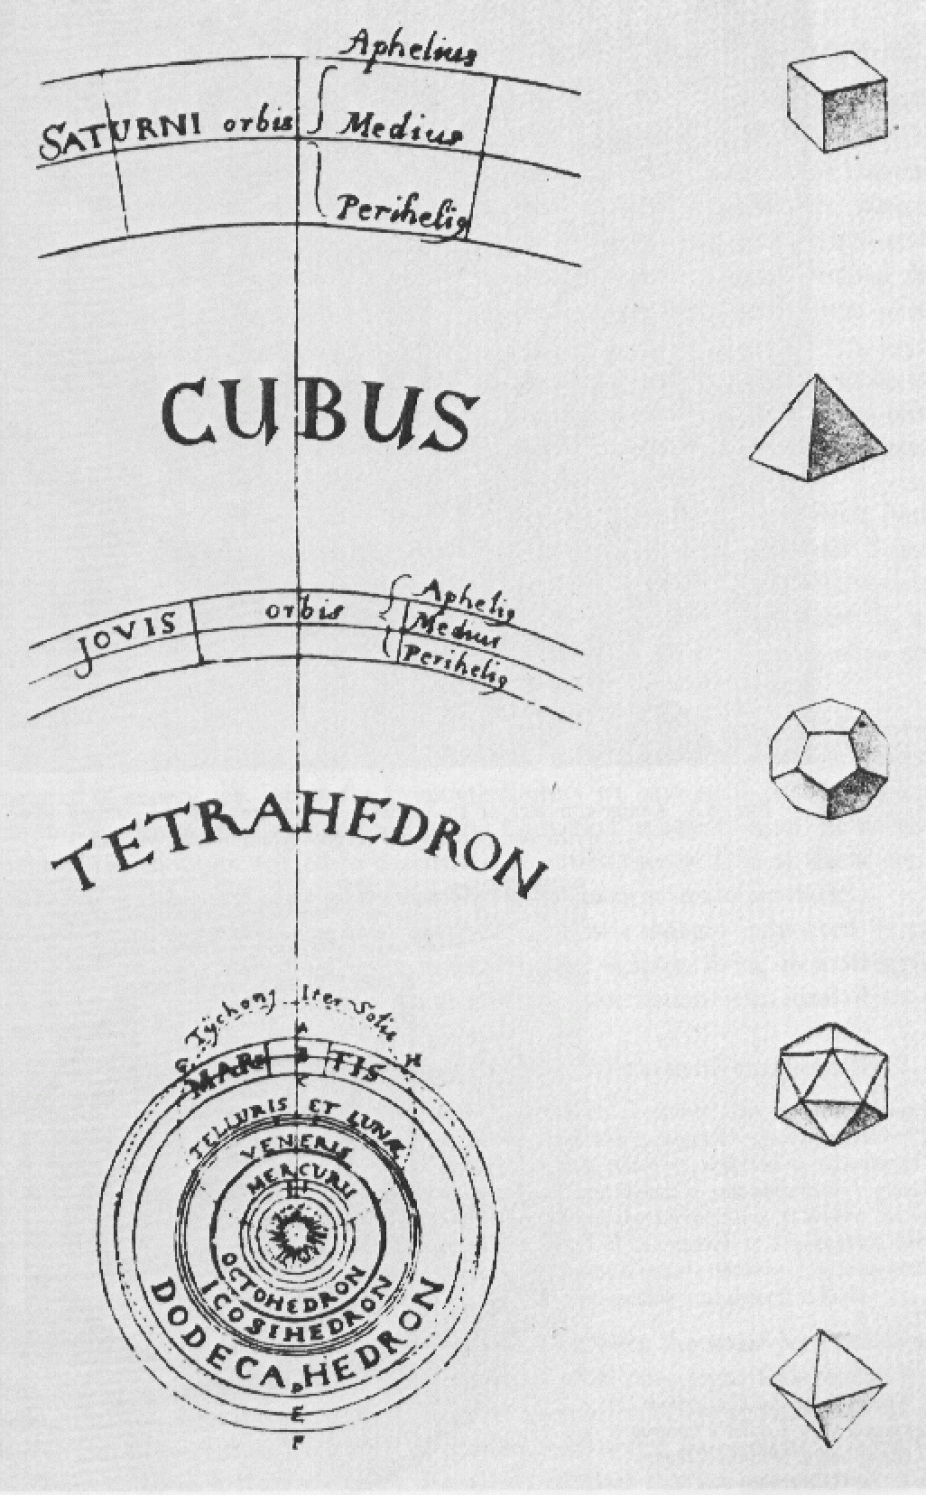 Aphelius
SATURNI orbis
Medius
Periheli9
CUBUS
JOVIS orbis
Apheli9
Medius
Periheli9
TETRAHEDRON
Tychoni Iter Solis
A
G
H
MAR B TIS
C
TELLURIS ET LUNÆ
VENERIS
MERCURII
OCTOHEDRON
ICOSIHEDRON
DODECAHEDRON
D
E
F